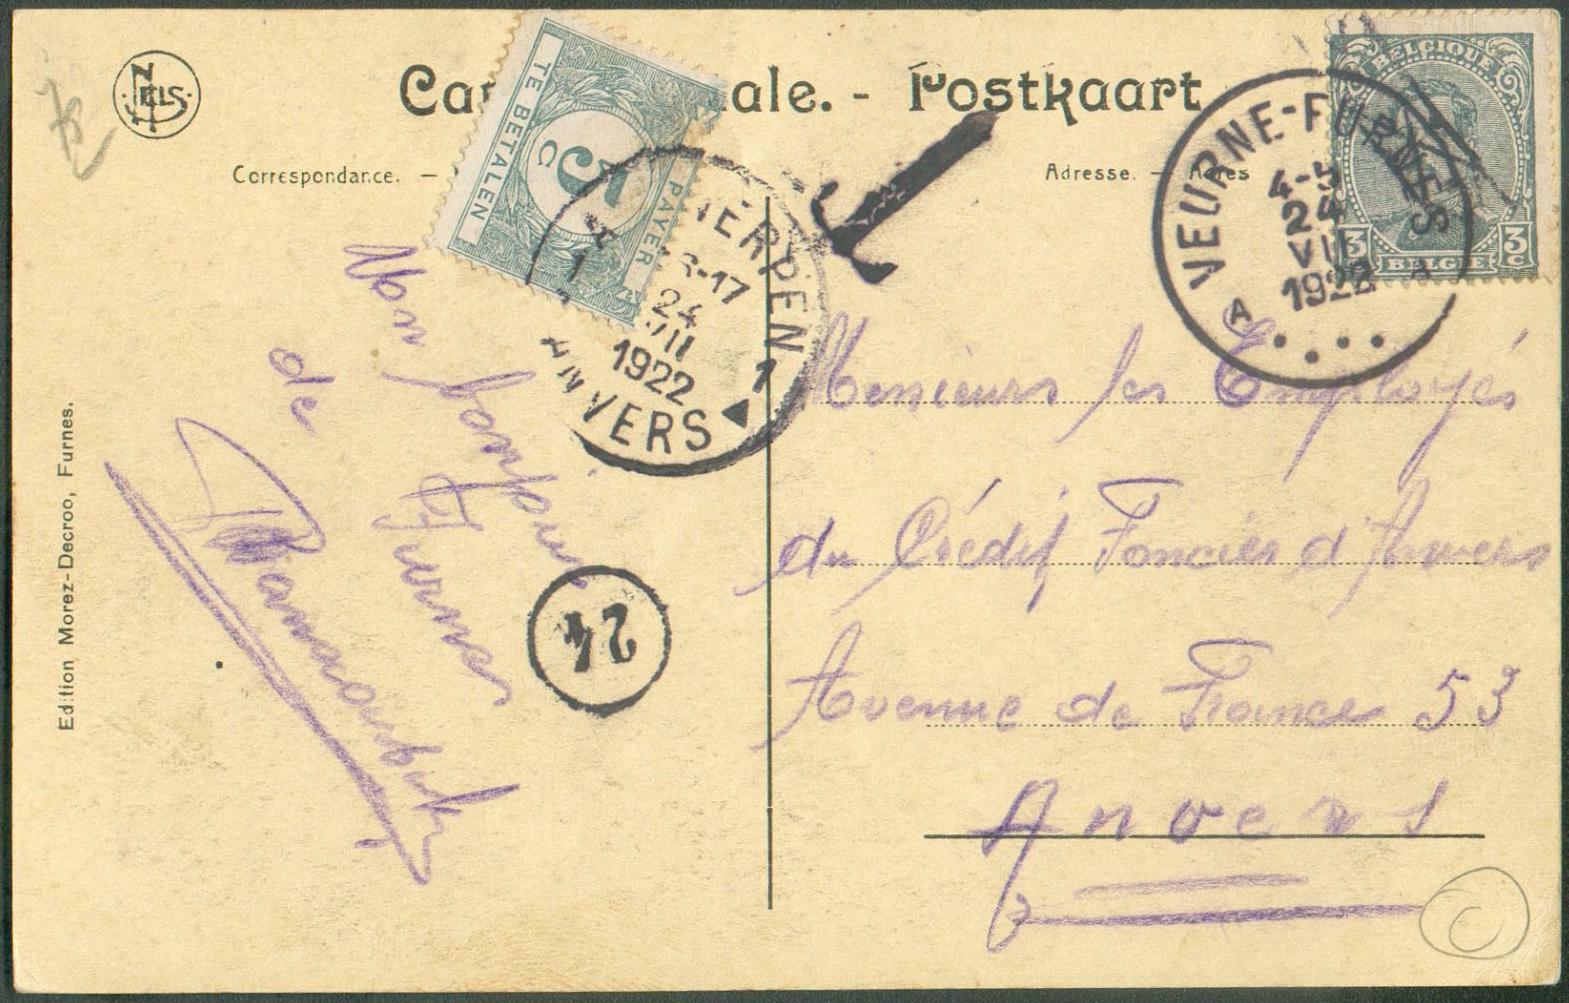 NELS
Carte Postale. - Postkaart
Correspondance. -
Adresse. - Adres
TE BETALEN
5
C
A PAYER
ANTWERPEN 1
16-17
24
VII
1922
ANVERS
T
VEURNE-FURNES
4-5
24
VII
1922
A A
BELGIQUE
3 BELGIE 3
C
Mon bonjour
de Furnes
24
Messieurs les Employés
du Crédit Foncier d'Anvers
Avenue de France 53
Anvers
Edition Morez-Decroo, Furnes.